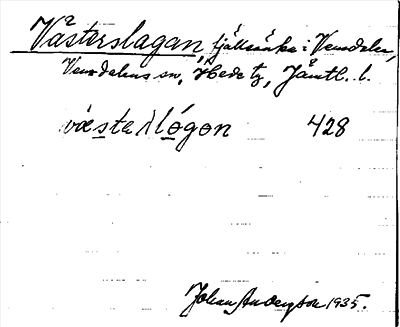 Våsterslagan, fjällsänka i Vemdalen,
Vemdalens sn, Hede tg, Jämtl. l.
væstaslógon 428
Johan Anderson 1935.